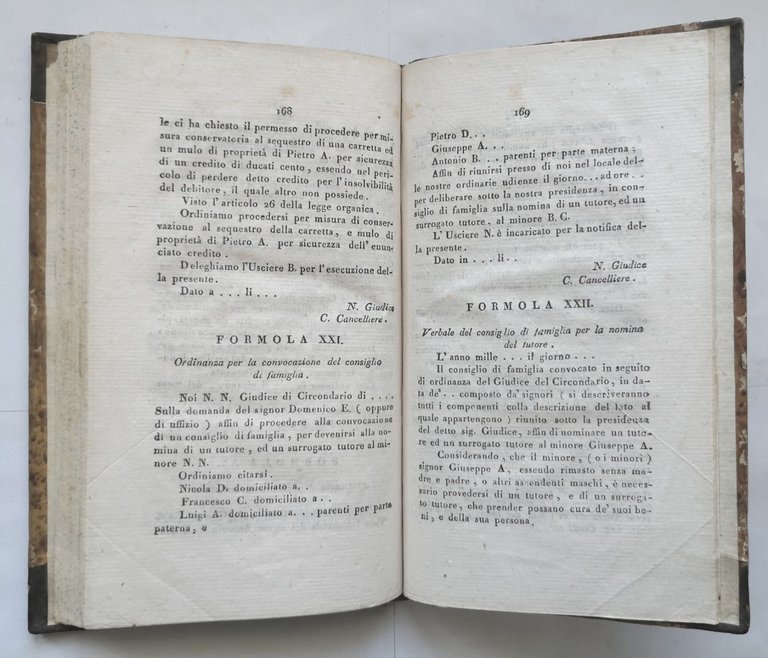 168
le ci ha chiesto il permesso di procedere per mi-
sura conservatoria al sequestro di una carretta ed
un mulo di proprietà di Pietro A. per sicurezza
di un credito di ducati cento, essendo nel peri-
colo di perdere detto credito per l'insolvibilità
del debitore, il quale altro non possiede.
Visto l'articolo 26 della legge organica.
Ordiniamo procedersi per misura di conser-
vazione al sequestro della carretta, e mulo di
proprietà di Pietro A. per sicurezza dell'enun-
ciato credito.
Deleghiamo l'Usciere B. per l'esecuzione del-
la presente.
Dato a . . . li . . .
N. Giudice
C. Cancelliere.
FORMOLA XXI.
Ordinanza per la convocazione del consiglio
di famiglia.
Noi N. N. Giudice di Circondario di . . . .
Sulla domanda del signor Domenico E. ( oppure
di uffizio ) affin di procedere alla convocazione
di un consiglio di famiglia, per devenirsi alla no-
mina di un tutore, ed un surrogato tutore al mi-
nore N. N.
Ordiniamo citarsi.
Nicola D. domiciliato a. .
Francesco C. domiciliato a. .
Luigi A. domiciliato a. . . parenti per parte
paterna, e
169
Pietro D. . .
Giuseppe A. . .
Antonio B. . . parenti per parte materna;
Affin di riunirsi presso di noi nel locale del-
le nostre ordinarie udienze il giorno. . . ad ore . .
per deliberare sotto la nostra presidenza, in con-
siglio di famiglia sulla nomina di un tutore, ed un
surrogato tutore, al minore B. C.
L'Usciere N. è incaricato per la notifica del-
la presente.
Dato in . . . li . .
N. Giudice
C. Cancelliere.
FORMOLA XXII.
Verbale del consiglio di famiglia per la nomina
del tutore.
L'anno mille . . . il giorno . . .
Il consiglio di famiglia convocato in seguito
di ordinanza del Giudice del Circondario, in da-
ta de' . . composto da' signori ( si descriveranno
tutti i componenti colla descrizione del lato al
quale appartengono ) riunito sotto la presidenza
del detto sig. Giudice, affin di nominare un tuto-
re ed un surrogato tutore al minore Giuseppe A.
Considerando, che il minore, ( o i minori )
signor Giuseppe A, essendo rimasto senza ma-
dre e padre, o altri ascendenti maschi, è neces-
sario provedersi di un tutore, e di un surroga-
to tutore, che prender possano cura de' suoi be-
ni, e della sua persona.